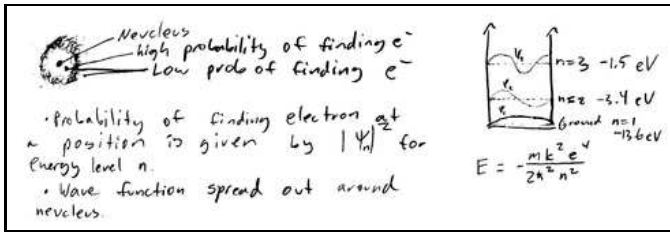 Nevcleus
high probability of finding e⁻
Low prob of finding e⁻
• Probability of finding electron at
a position is given by |Ψn|² for
energy level n.
• Wave function spread out around
nevcleus.
n=3 -1.5 eV
n=2 -3.4 eV
Ground n=1
-13.6 eV
E = - mk²e⁴ / 2ħ²n²